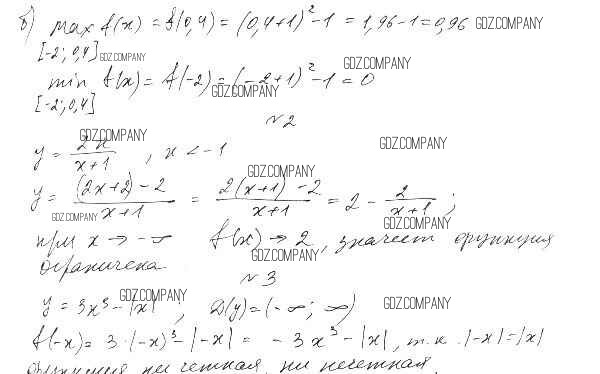 б) max f(x) = f(0,4) = (0,4+1)² -1 = 1,96-1 = 0,96 GDZ.COMPANY
[-2; 0,4] GDZ.COMPANY
GDZ.COMPANY
min f(x) = f(-2) = (-2+1)² -1 = 0
GDZ.COMPANY
[-2; 0,4]
№2
GDZ.COMPANY GDZ.COMPANY
y = 2x/(x+1) , x < -1
GDZ.COMPANY
y = ((2x+2)-2)/(x+1) = (2(x+1)-2)/(x+1) = 2 - 2/(x+1) ;
GDZ.COMPANY GDZ.COMPANY
при x → -∞ f(x) → 2, значит функция
GDZ.COMPANY
ограничена
№3
GDZ.COMPANY GDZ.COMPANY
y = 3x³ - |x| ; D(y) = (-∞; ∞)
f(-x) = 3·(-x)³ - |-x| = -3x³ - |x|, т.к. |-x| = |x|
функция ни четная, ни нечетная.